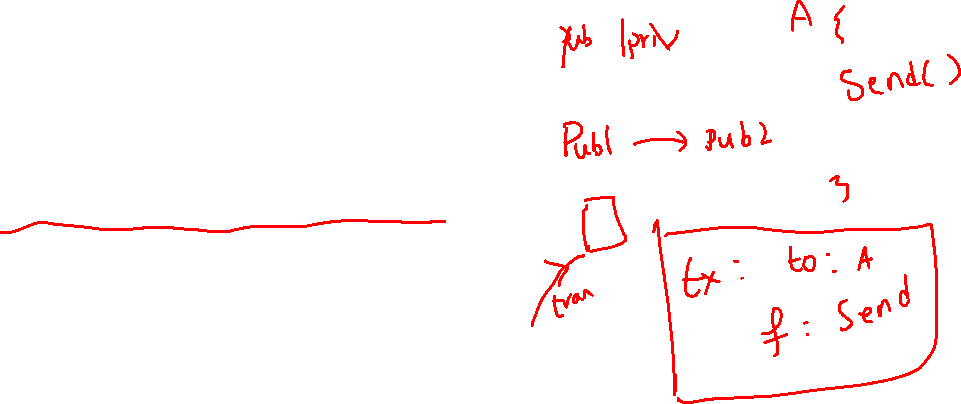 pub/priv
A {
Send()
}
Pub1 → Pub2
tran
tx: to: A
f: Send